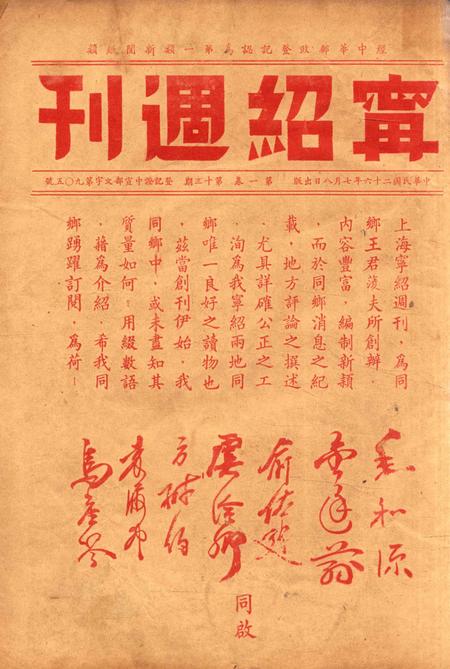 經中華郵政登記認為第一類新聞紙類
甯紹週刊
中華民國二十六年七月八日出版 第一卷 第十三期 登記證中宣部文字第九〇五號
上海甯紹週刊,為同
鄉王君浚夫所創辦.
內容豐富,編制新穎
,而於同鄉消息之紀
載,地方評論之撰述
.尤具詳確公正之工
.洵為我甯紹兩地同
鄉唯一良好之讀物也
.茲當創刊伊始,我
同鄉中,或未盡知其
質量如何!用綴數語
.藉為介紹.希我同
鄉踴躍訂閱,為荷!
毛和源
金廷蓀
俞佐庭
虞洽卿
方椒伯
袁履登
烏崖琴
同啟